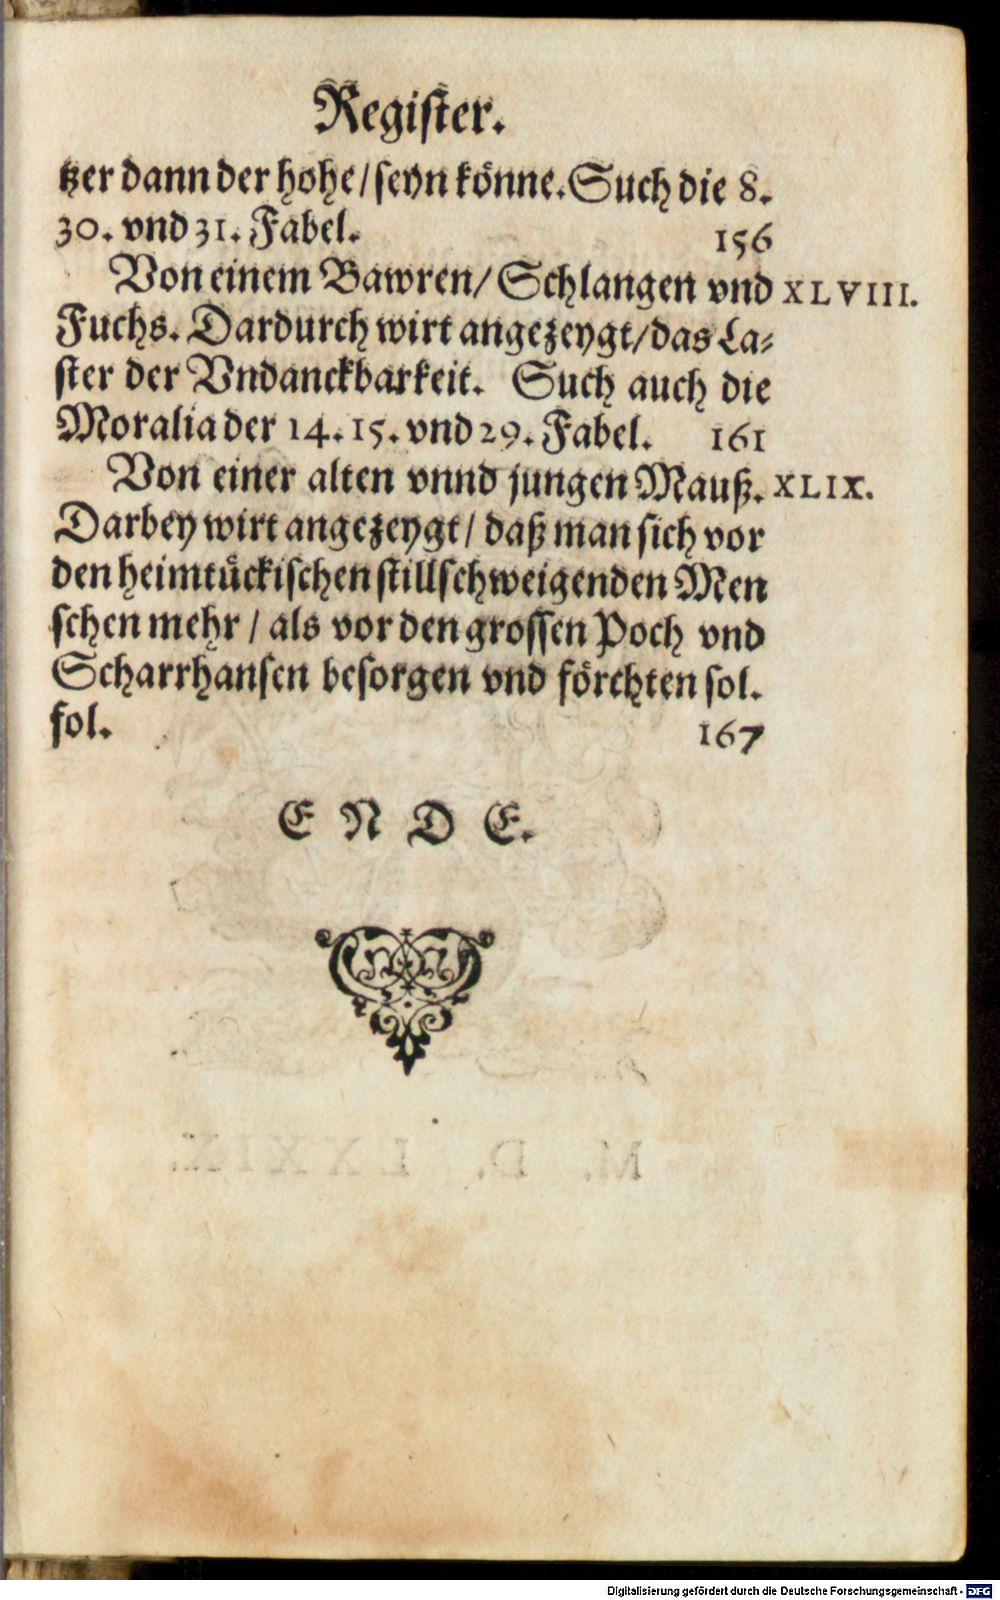 Register.
tzer dann der hohe / seyn könne. Such die 8.
30. vnd 31. Fabel. 156
Von einem Bawren / Schlangen vnd XLVIII.
Fuchs. Dardurch wirt angezeygt / das La-
ster der Vndanckbarkeit. Such auch die
Moralia der 14. 15. vnd 29. Fabel. 161
Von einer alten vnnd jungen Mauß. XLIX.
Darbey wirt angezeygt / daß man sich vor
den heimtückischen stillschweigenden Men
schen mehr / als vor den grossen Poch vnd
Scharrhansen besorgen vnd förchten sol.
fol. 167
E N D E.
M. D. LXXIX.
Digitalisierung gefördert durch die Deutsche Forschungsgemeinschaft - DFG